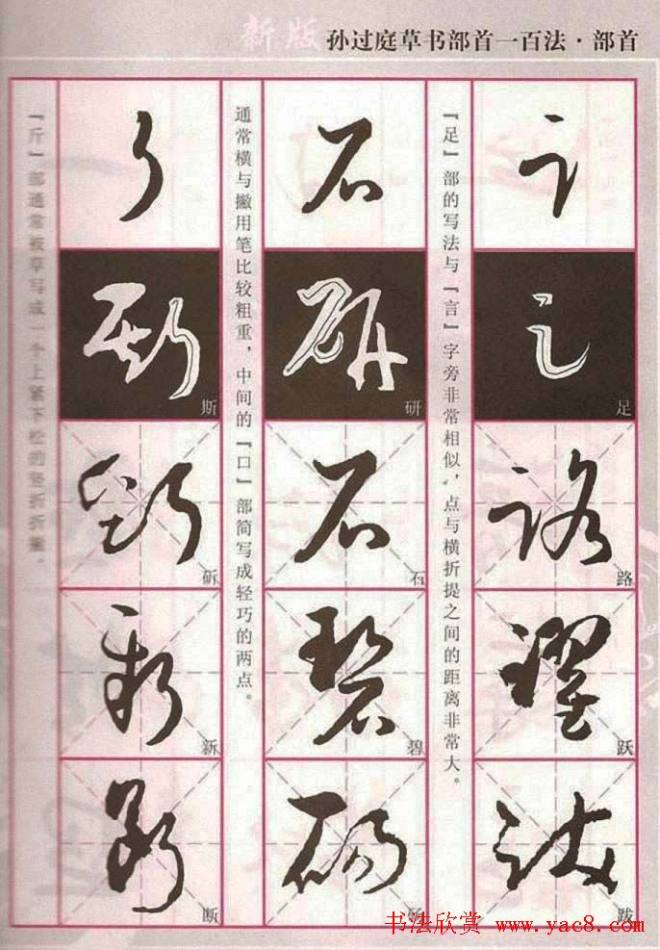 新版 孙过庭草书部首一百法·部首
足
路
跃
跋
『足』部的写法与『言』字旁非常相似，点与横折提之间的距离非常大。
研
石
碧
通常横与撇用笔比较粗重，中间的『口』部简写成轻巧的两点。
斯
斫
新
断
『斤』部通常被草写成一个上紧下松的竖折折撇。
书法欣赏 www.yac8.com